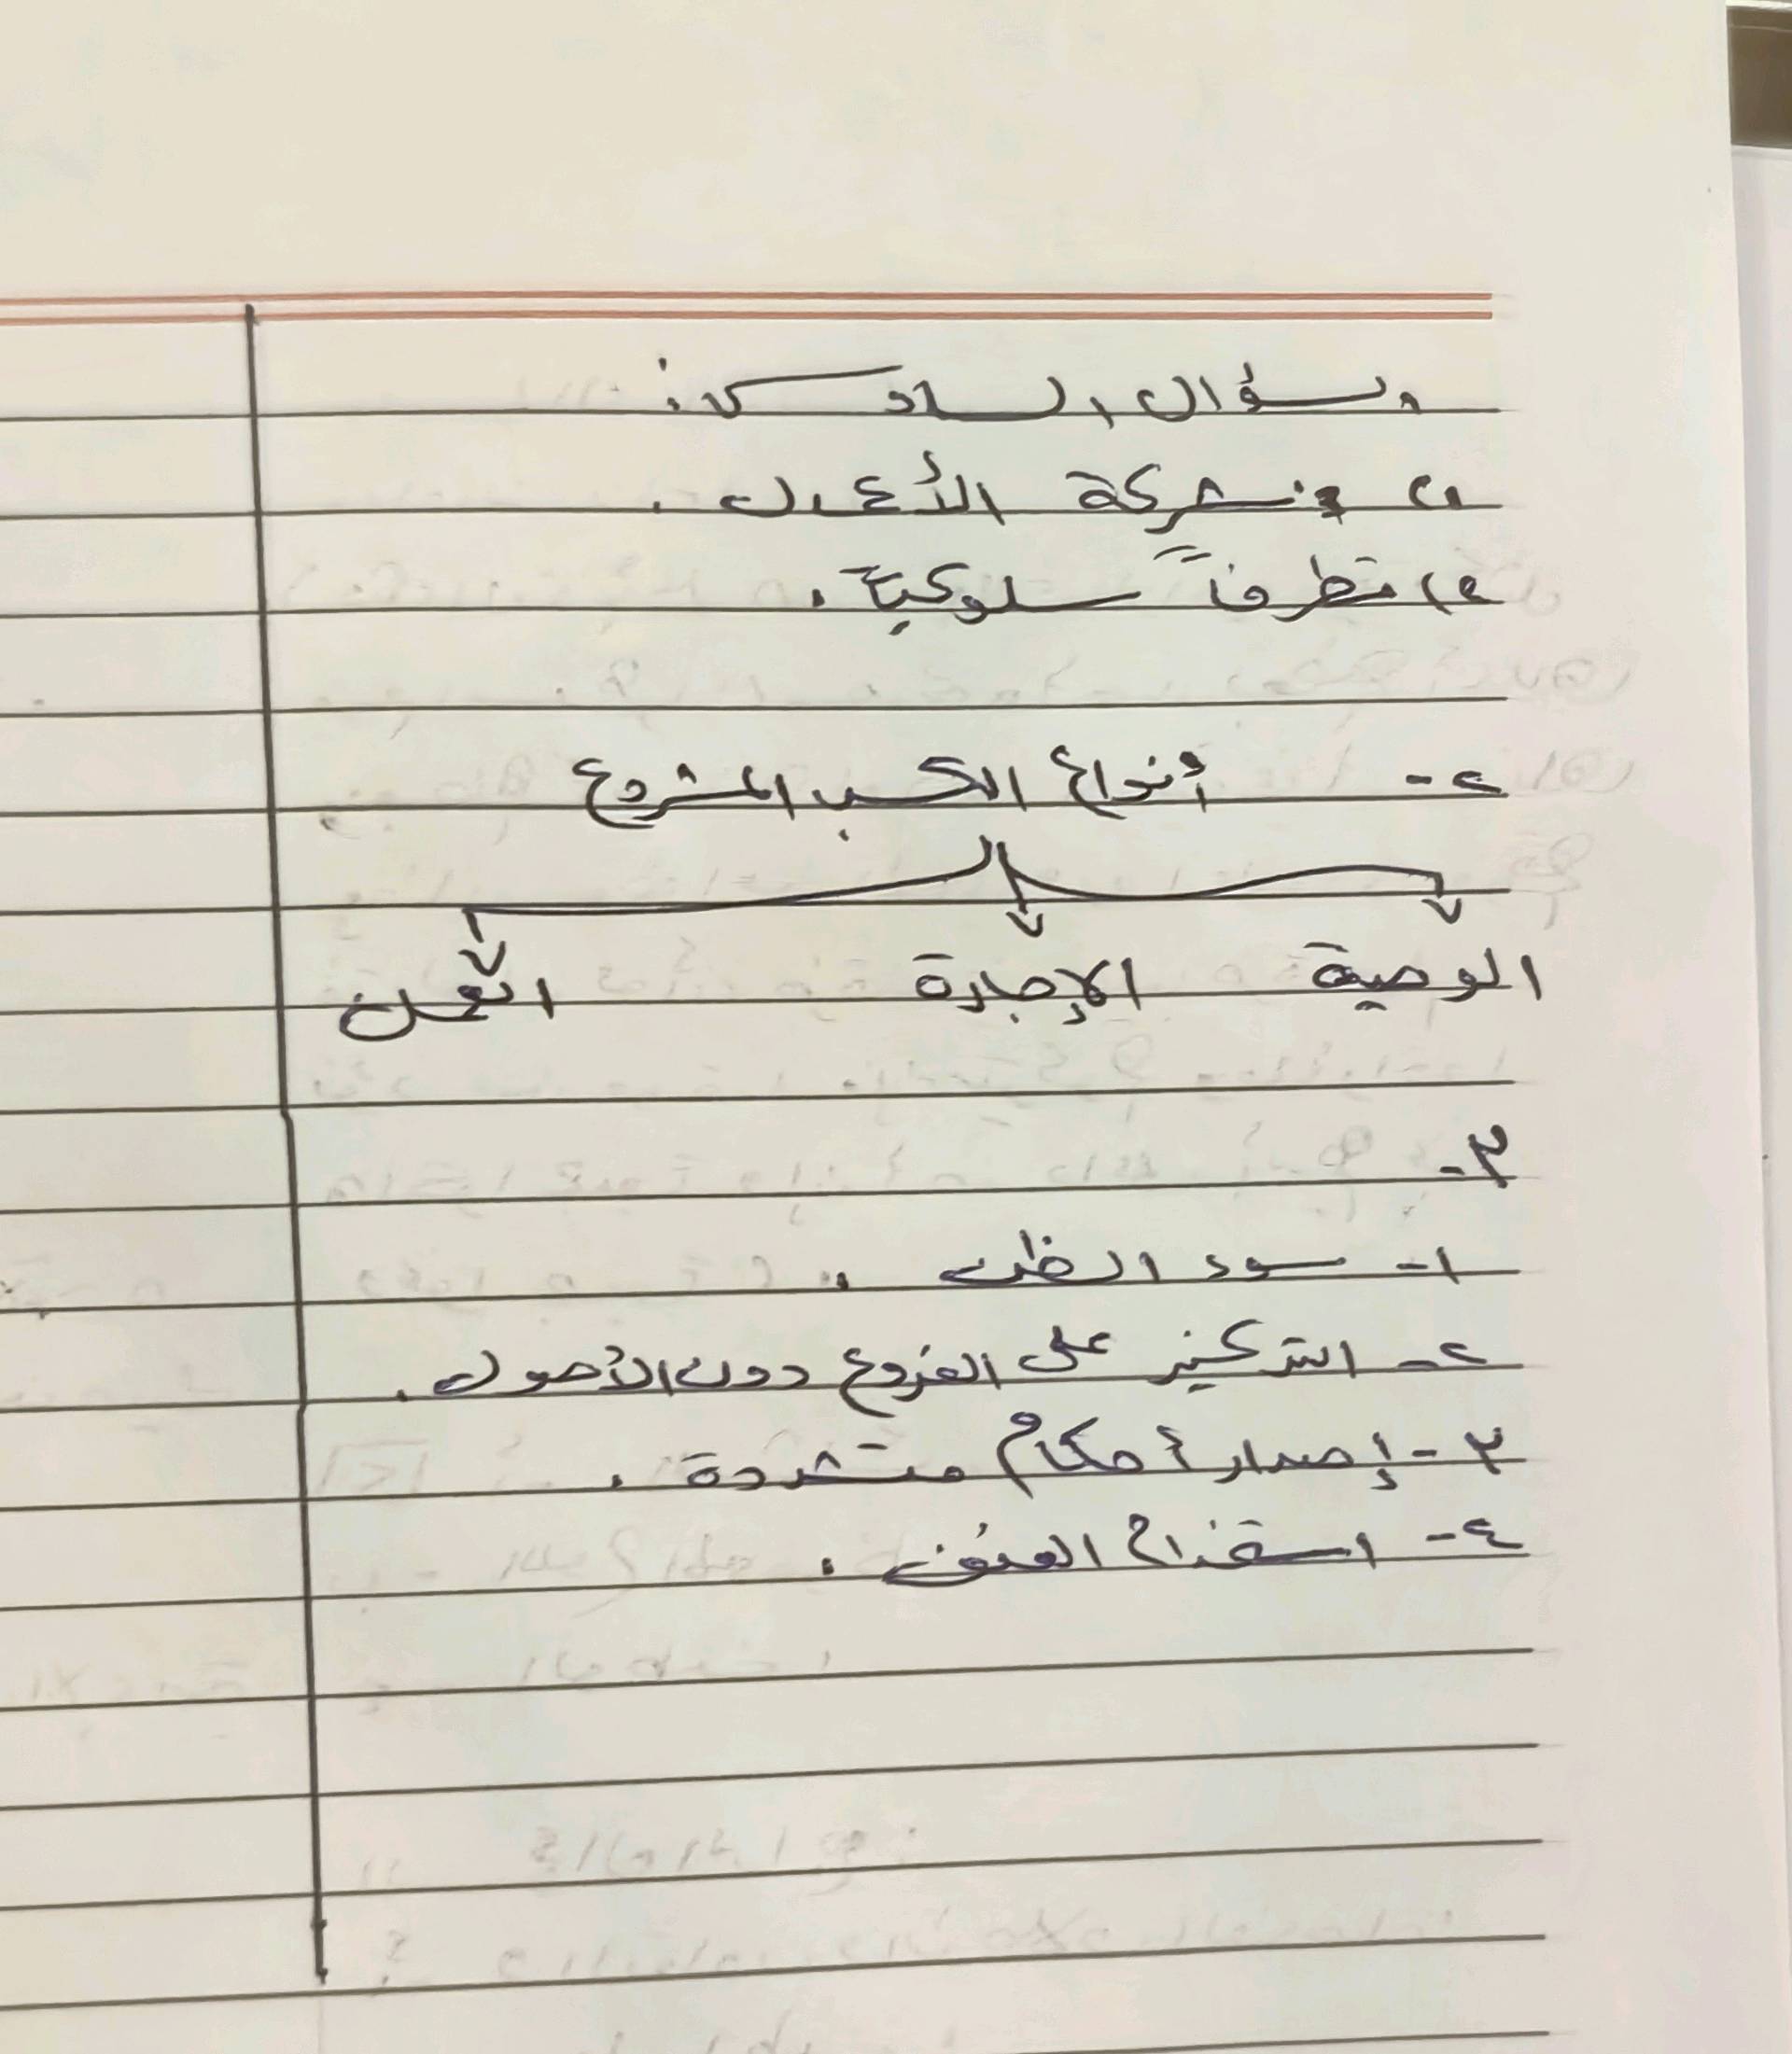 السؤال السادس:
١) شركة الأعمال.
٢) تطرفاً سلوكياً.
٢- أنواع الكسب المشروع
الوصية الإجارة العمل
٣-
١- سوء الظن.
٢- التركيز على الفروع دون الأصول.
٣- إصدار أحكام متشددة.
٤- استخدام العنف.